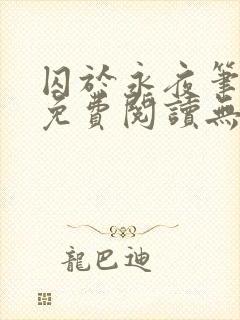 囚於永夜筆
免費閱讀無
龍巴迪